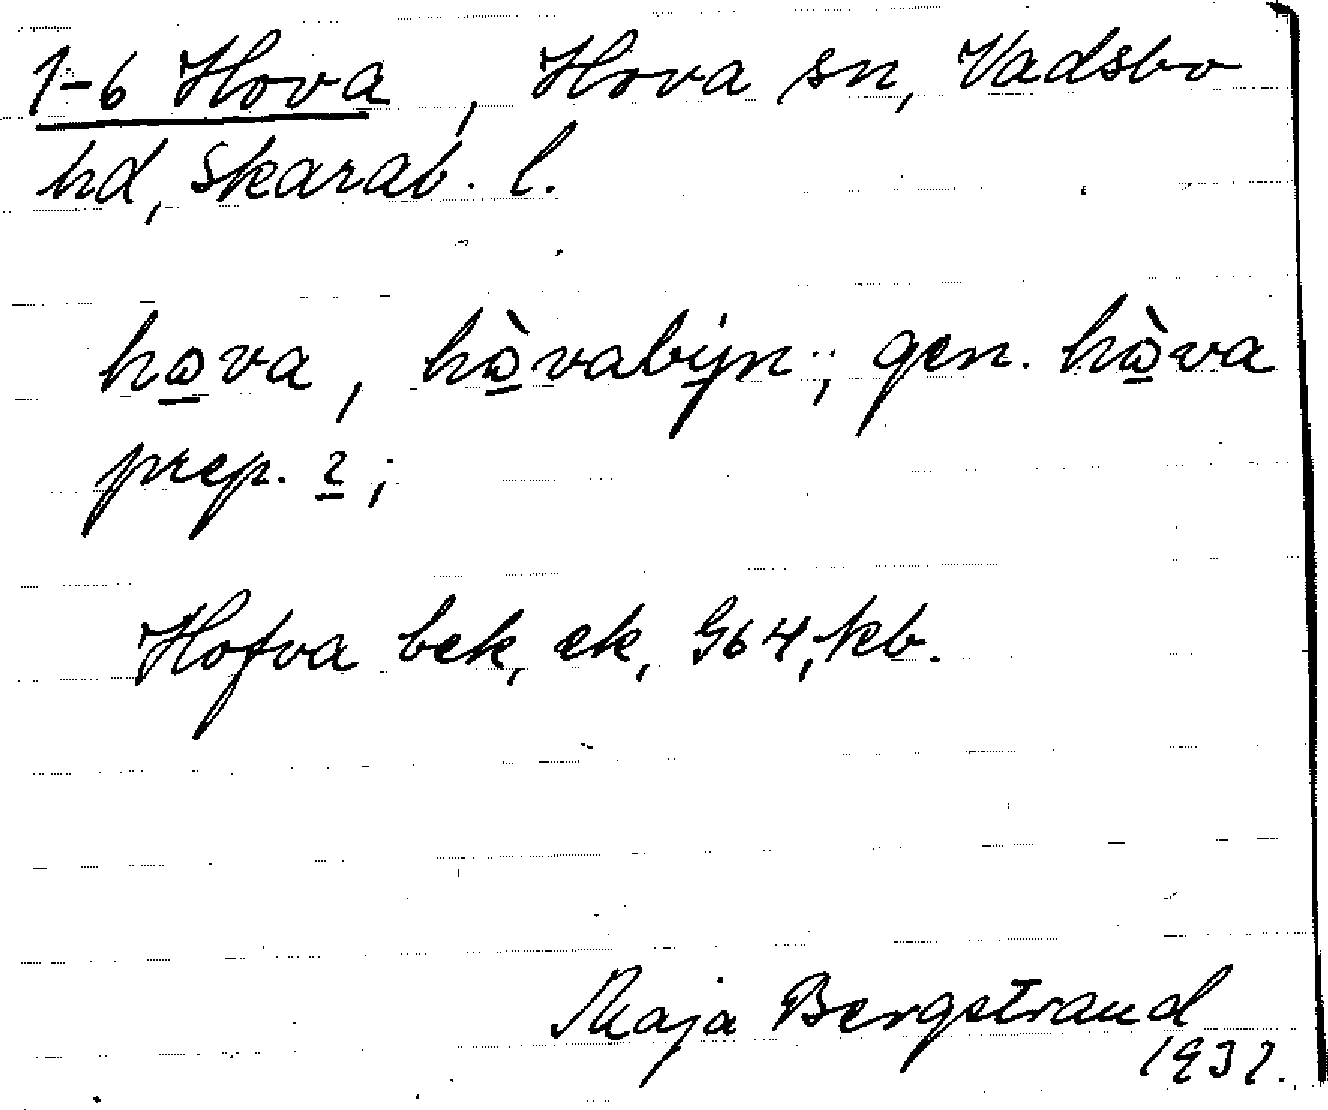 1-6 Hova, Hova sn, Vadsbo
hd, Skarab. l.
hava, hàvabýn; gen. hàva
prep. 2;
Hofva bek, ek, G64, kb.
Maja Bergstrand
1931.